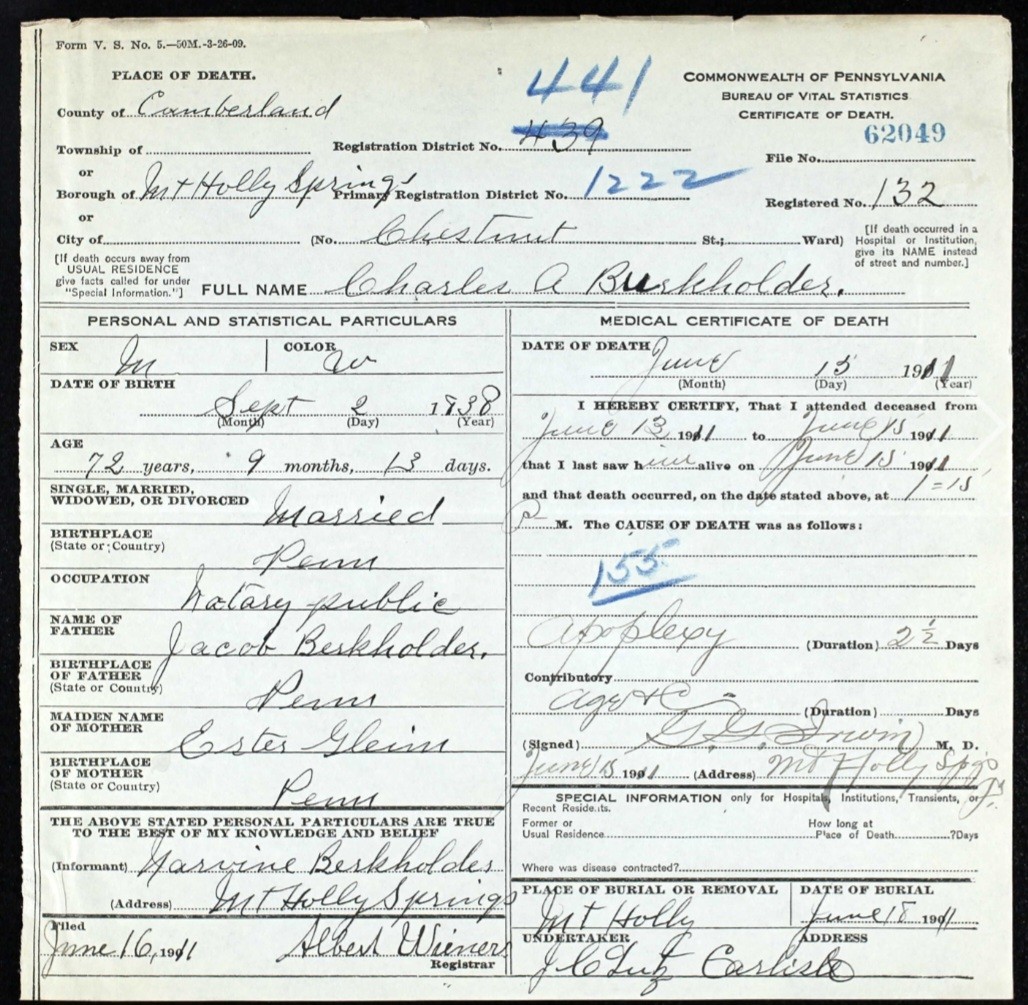 Form V. S. No. 5.—50M.-3-26-09.
PLACE OF DEATH.
County of Cumberland
Township of
or
Borough of Mt Holly Springs
or
City of
(No. Chestnut St.; Ward)
[If death occurs away from
USUAL RESIDENCE
give facts called for under
"Special Information."]
441
Registration District No. 439
Primary Registration District No. 1222
COMMONWEALTH OF PENNSYLVANIA
BUREAU OF VITAL STATISTICS
CERTIFICATE OF DEATH.
62049
File No.
Registered No. 132
[If death occurred in a
Hospital or Institution,
give its NAME instead
of street and number.]
FULL NAME Charles A Burkholder.
PERSONAL AND STATISTICAL PARTICULARS
SEX M COLOR W
DATE OF BIRTH
Sept 2 1838
(Month) (Day) (Year)
AGE
72 years, 9 months, 13 days.
SINGLE, MARRIED,
WIDOWED, OR DIVORCED
Married
BIRTHPLACE
(State or Country)
Penn
OCCUPATION
Notary public
NAME OF
FATHER
Jacob Berkholder.
BIRTHPLACE
OF FATHER
(State or Country)
Penn
MAIDEN NAME
OF MOTHER
Ester Gleim
BIRTHPLACE
OF MOTHER
(State or Country)
Penn
THE ABOVE STATED PERSONAL PARTICULARS ARE TRUE
TO THE BEST OF MY KNOWLEDGE AND BELIEF
(Informant) Narvine Berkholder
(Address) Mt Holly Springs
Filed
June 16, 1911 Albert Wieners
Registrar
MEDICAL CERTIFICATE OF DEATH
DATE OF DEATH
June 15 1911
(Month) (Day) (Year)
I HEREBY CERTIFY, That I attended deceased from
June 13 1911 to June 15 1911
that I last saw him alive on June 15 1911
and that death occurred, on the date stated above, at 1=15
P M. The CAUSE OF DEATH was as follows:
155
Apoplexy (Duration) 2½ Days
Contributory
Age &c (Duration) Days
(Signed) G. G. Irwin M. D.
June 15 1911 (Address) Mt Holly Spgs
SPECIAL INFORMATION only for Hospitals, Institutions, Transients, or
Recent Residents.
Former or
Usual Residence
How long at
Place of Death ?Days
Where was disease contracted?
PLACE OF BURIAL OR REMOVAL
Mt Holly
DATE OF BURIAL
June 18 1911
UNDERTAKER
J C Lutz
ADDRESS
Carlisle